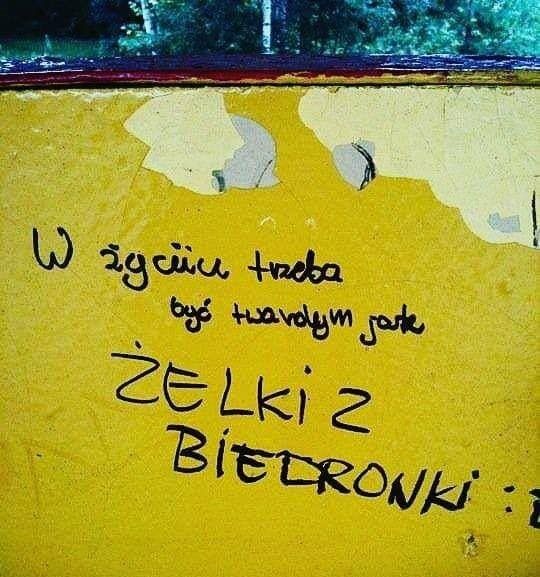 W życiu trzeba
być twardym jak
ŻELKI Z
BIEDRONKI :D